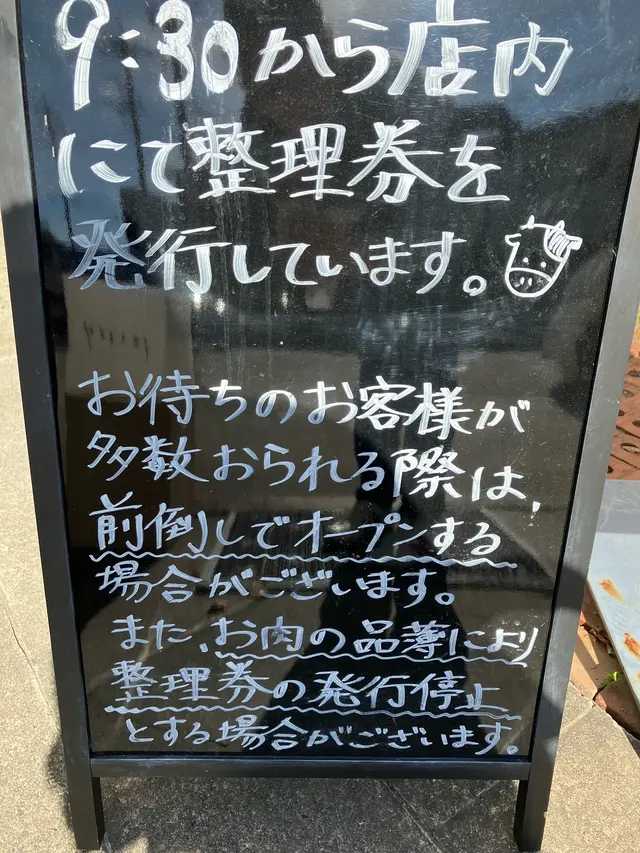 9:30から店内
にて整理券を
発行しています。
お待ちのお客様が
多数おられる際は、
前倒しでオープンする
場合がございます。
また、お肉の品薄により
整理券の発行停止
とする場合がございます。